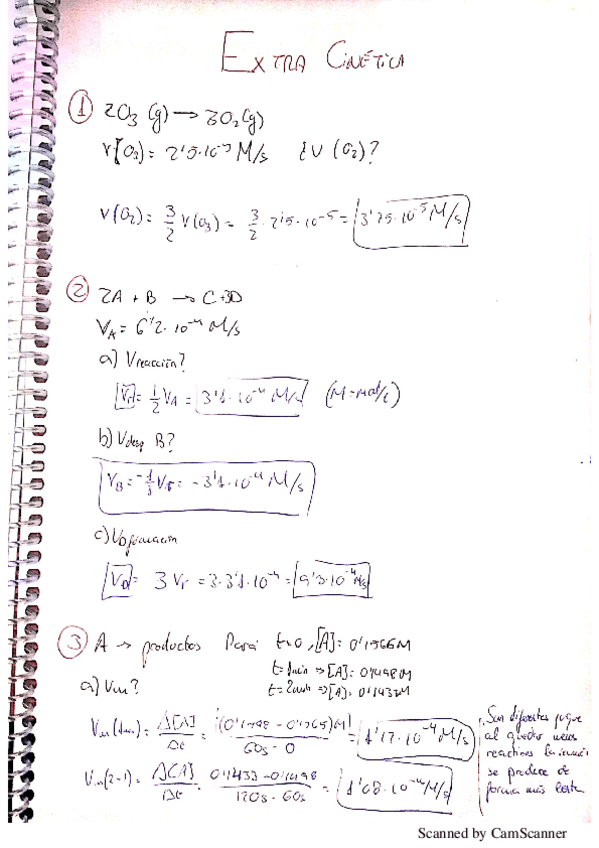 EXTRA CINÉTICA
① 2O₃ (g) → 3O₂(g)
V[O₃] = 2'5·10⁻⁵ M/s ¿V (O₂)?
V(O₂) = 3/2 V(O₃) = 3/2 · 2'5·10⁻⁵ = 3'75·10⁻⁵ M/s
② 2A + B → C+3D
V_A = 6'2·10⁻⁴ M/s
a) Vreacción?
Vr = 1/2 V_A = 3'1·10⁻⁴ M/s (M=mol/L)
b) Vdesp B?
V_B = -1/1 Vr = -3'1·10⁻⁴ M/s
c) V_D formación
V_D = 3 Vr = 3·3'1·10⁻⁴ = 9'3·10⁻⁴ M/s
③ A → productos Para t=0, [A] = 0'1565M
t=1min ⇒ [A]: 0'1498M
t=2min ⇒ [A]: 0'1433M
a) Vm?
Vm(1min) = Δ[A]/Δt = (0'1498 - 0'1565)M/60s - 0 = 1'17·10⁻⁴ M/s
Vm(2-1) = Δ[A]/Δt = 0'1433 - 0'1498/120s - 60s = 1'08·10⁻⁴ M/s
Son diferentes porque
al quedar menos
reactivos la
se produce de
forma más lenta
Scanned by CamScanner